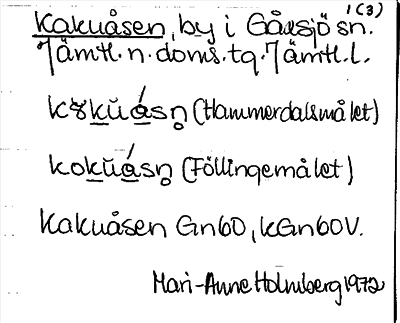 1(3)
Kakuåsen, by i Gåxsjö sn.
Jämtl. n. doms. tg. Jämtl. l.
kɤk̲ŭá̲sn̥ (Hammerdalsmålet)
kok̲ŭá̲sn̥ (Föllingemålet)
Kakuåsen Gn60, kGn60V.
Mari-Anne Holmberg 1972